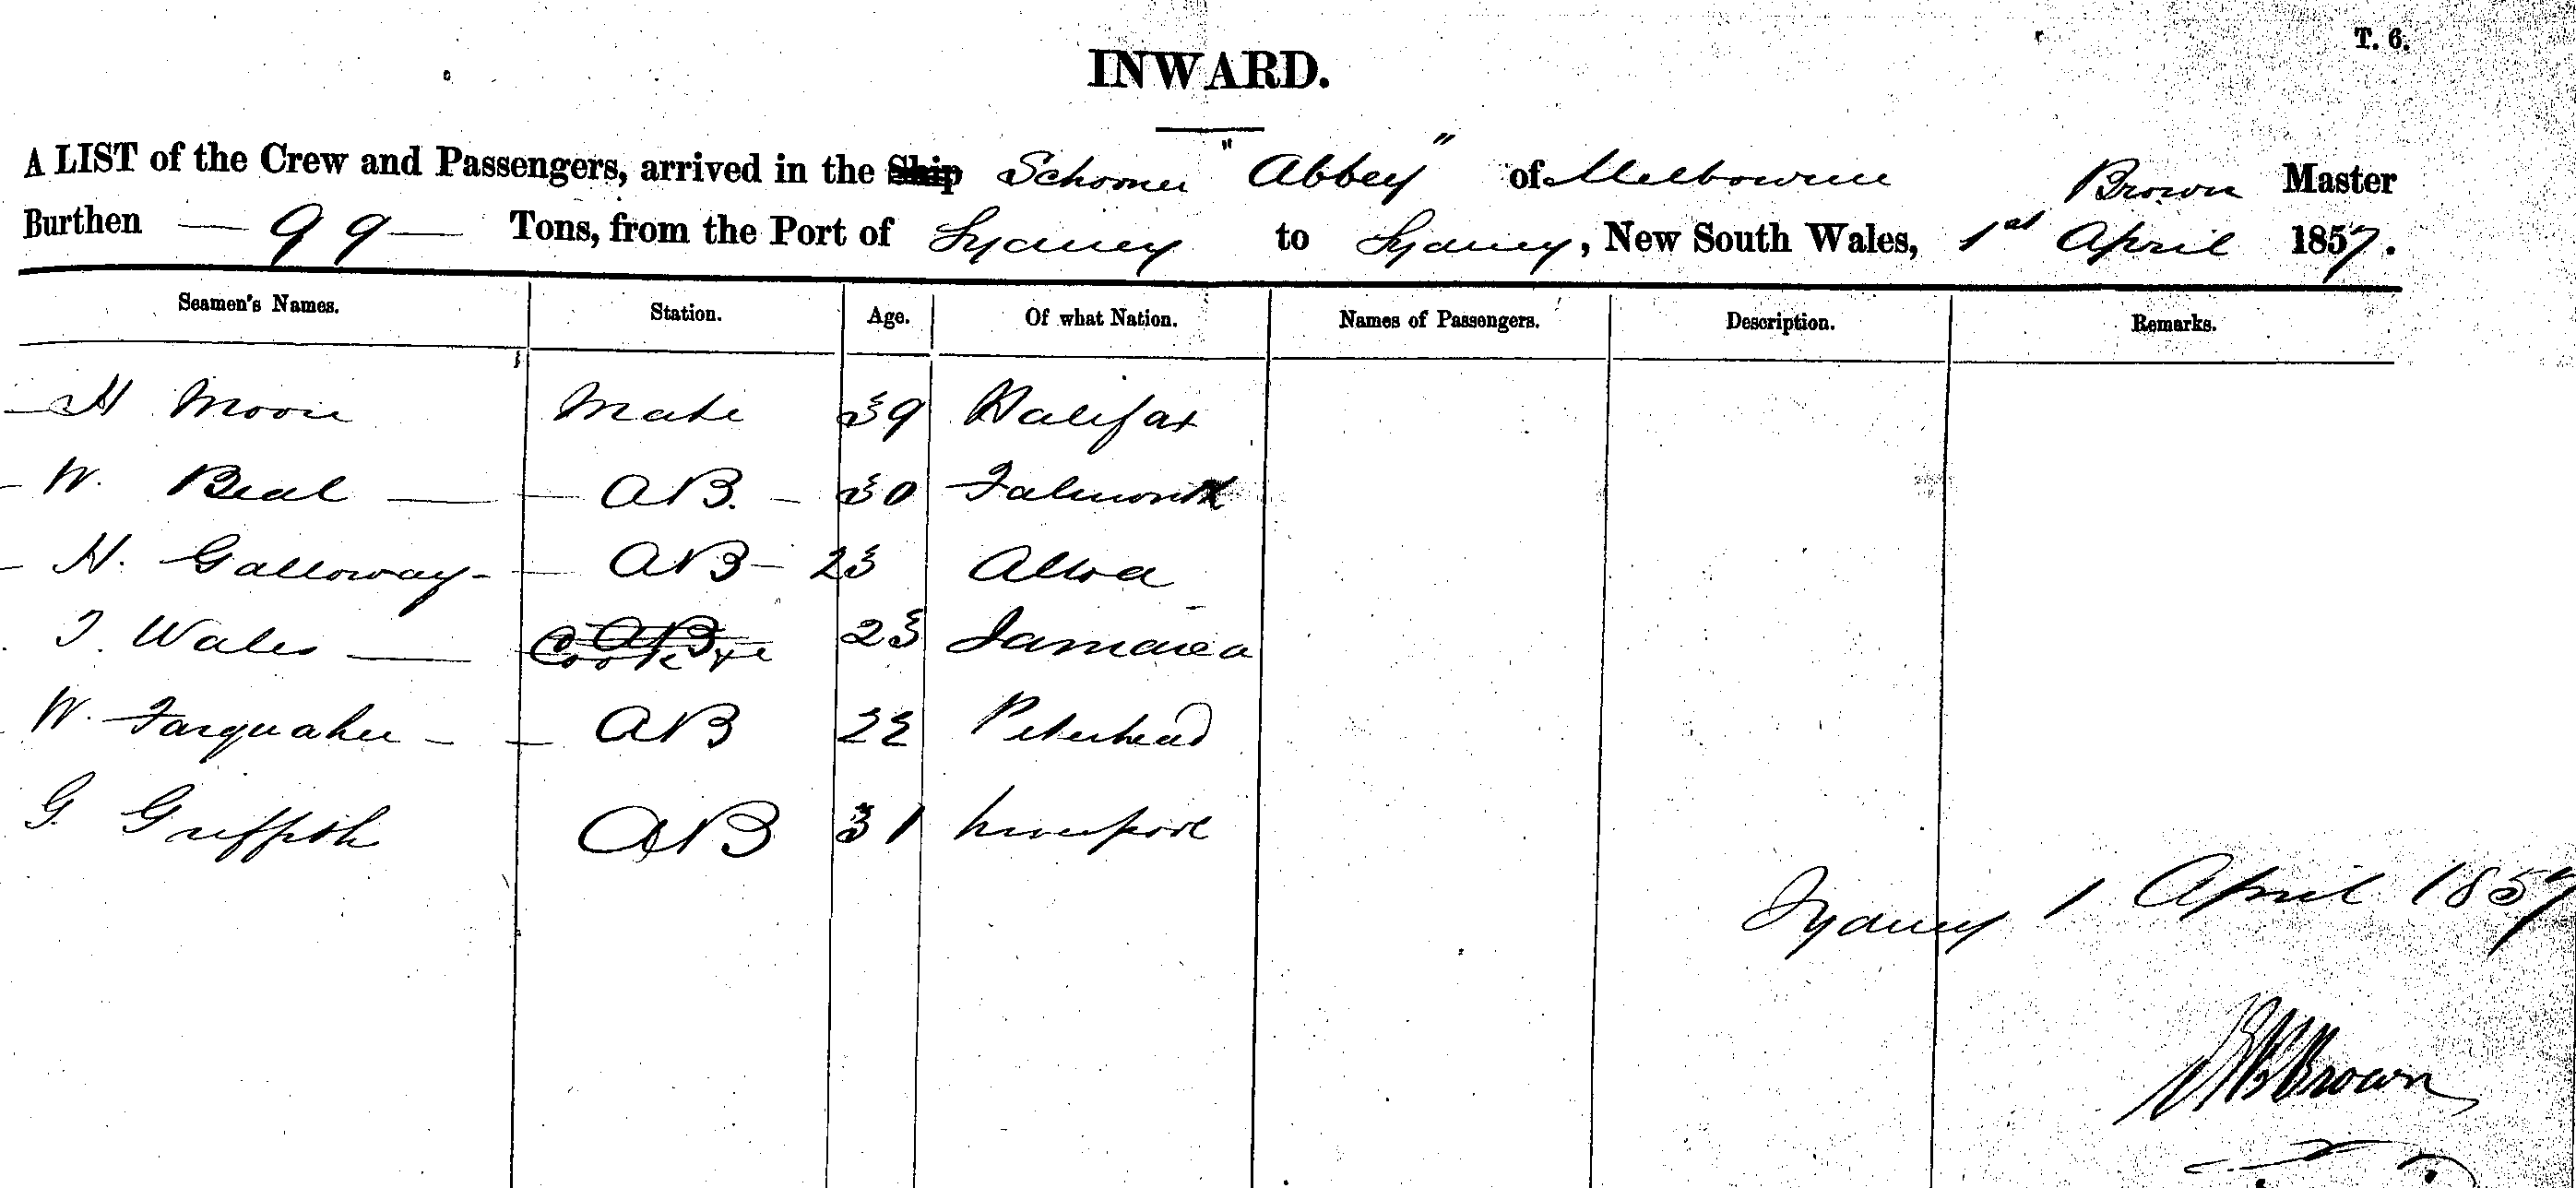 T. 6.
INWARD.
A LIST of the Crew and Passengers, arrived in the Ship Schooner "Abbey" of Melbourne Brown Master
Burthen — 99 — Tons, from the Port of Sydney to Sydney, New South Wales, 1st April 1857.
Seamen's Names. Station. Age. Of what Nation. Names of Passengers. Description. Remarks.
H Moore Mate 39 Halifax
W. Beal — AB. 30 Falmouth
H. Galloway - AB - 23 Alloa
T. Wales — AB Cook &c 23 Jamaica
W. Farquaher - AB 22 Peterhead
G. Griffith AB 31 Liverpool
Sydney 1 April 1857
Brown